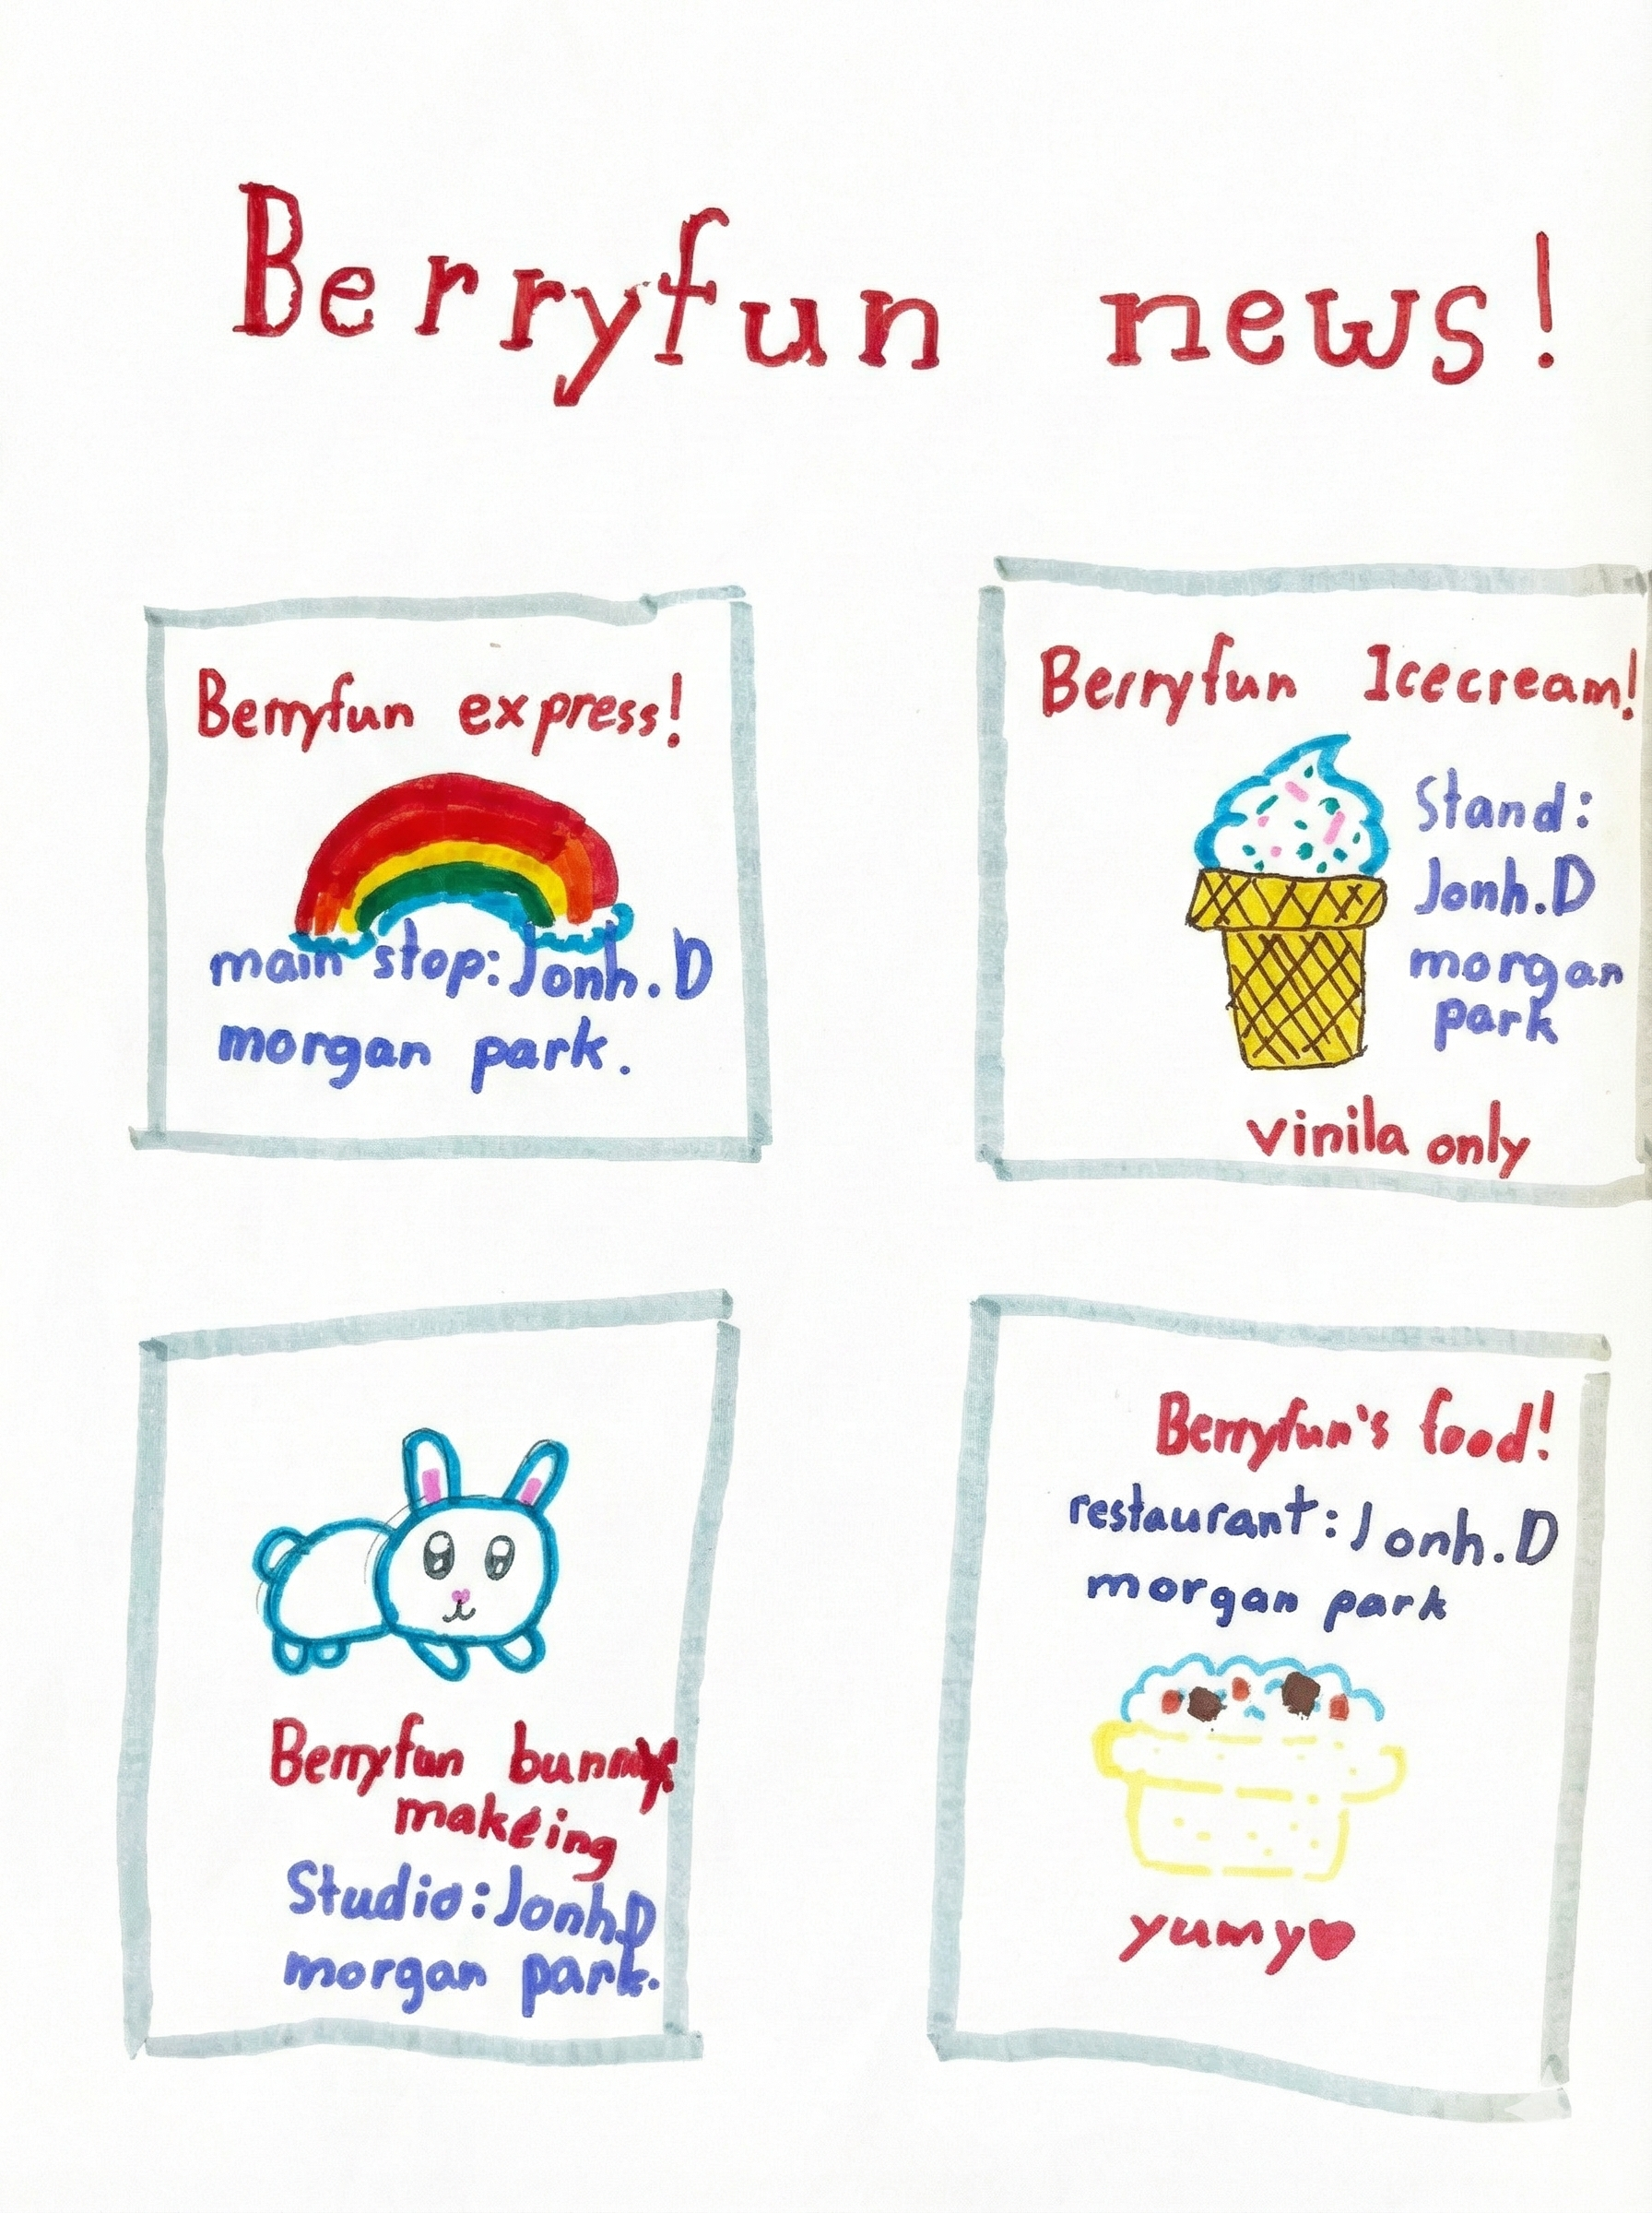 Berryfun news!
Berryfun express!
main stop: Jonh.D
morgan park.
Berryfun Icecream!
Stand:
Jonh.D
morgan
park
vinila only
Berryfun bunny
makeing
Studio: Jonh.D
morgan park.
Berryfun's food!
restaurant: Jonh.D
morgan park
yumy